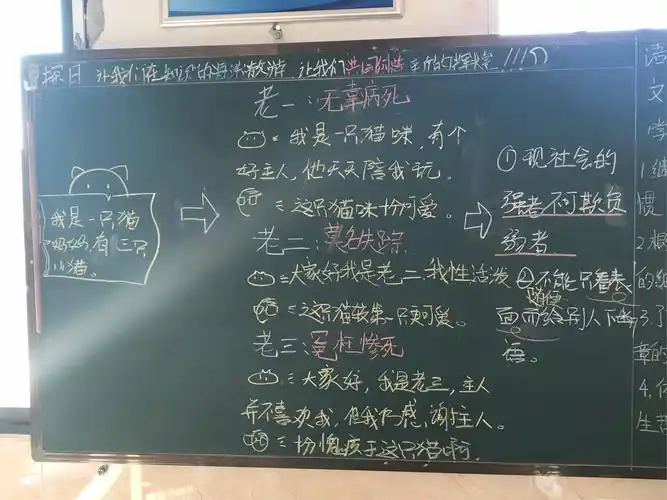 探日 让我们在知识的海洋遨游 让我们共同创造 的辉煌!!!
我是一只猫
妈妈,有三只
小猫。
老一:无辜病死
我是一只猫咪,有个
好主人,他天天陪我玩。
这只猫咪怡可爱。
老二:莫名失踪
大家好我是老二,我性活泼
这只猫较第一只更可爱。
老三:冤枉惨死
大家好,我是老三,主人
并不喜欢我,但我仍感谢主人。
愧疚于这只猫啊
①现社会的
强者不可欺负
弱者
②不能只看表
随便
面而给别人下断
语。
语
文
学
1.继
惯
2.根
的
3.了
章的
4.
生